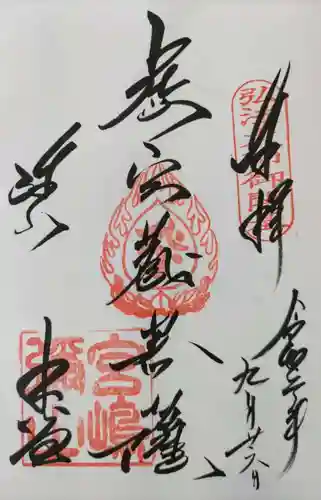 奉拝
弘法大師御開基
令和二年
九月廿六日
虚空蔵菩薩
弥山
本堂
宮嶋
彌山